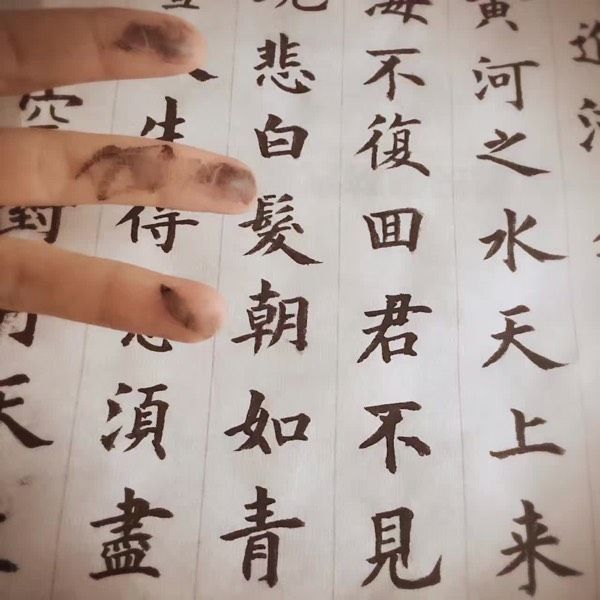 進
黄河之水天上来
海不復回君不見
悲白髮朝如青
生得意須盡
空對月天